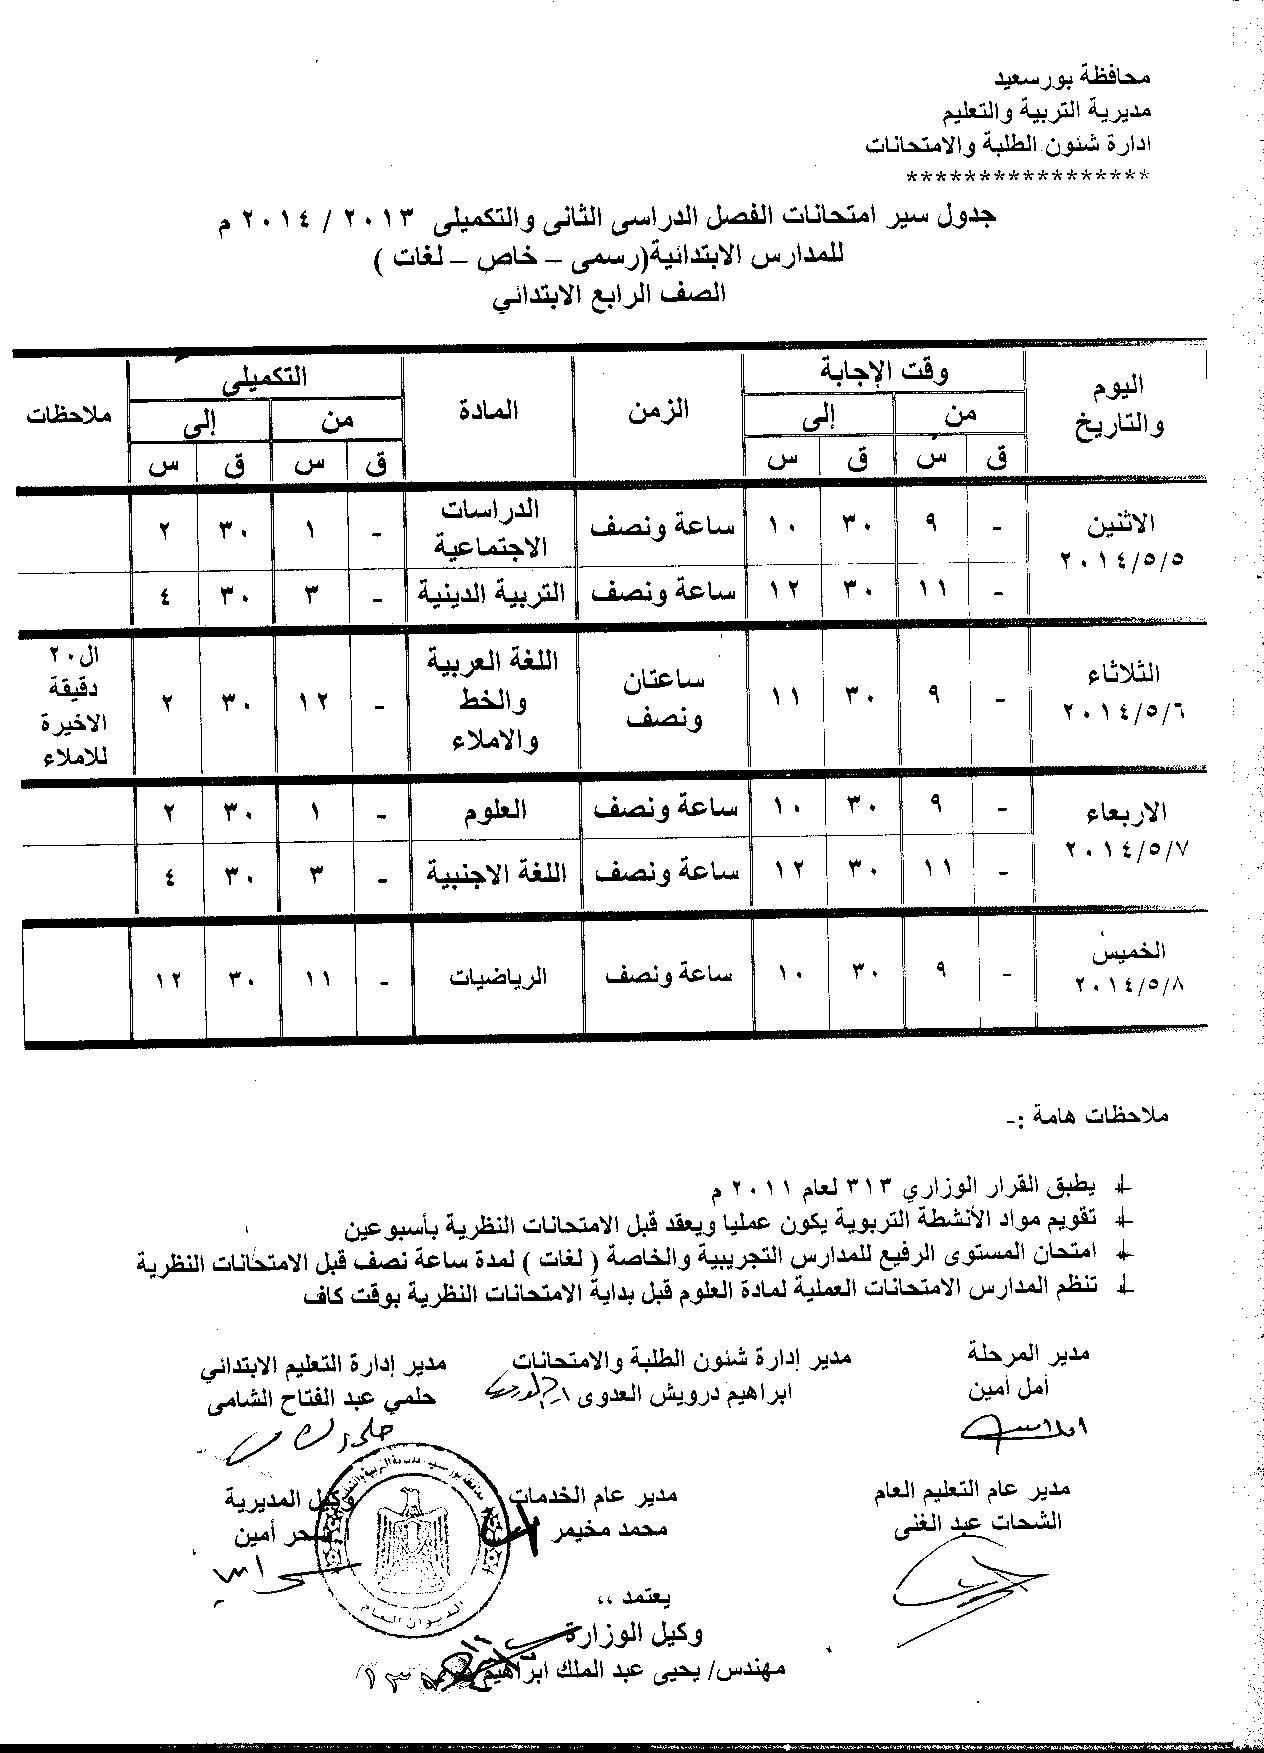 محافظة بورسعيد
مديرية التربية والتعليم
ادارة شئون الطلبة والامتحانات
*****************
جدول سير امتحانات الفصل الدراسى الثانى والتكميلى ٢٠١٣ / ٢٠١٤ م
للمدارس الابتدائية(رسمى – خاص – لغات )
الصف الرابع الابتدائي
اليوم والتاريخ وقت الإجابة الزمن المادة التكميلى ملاحظات
من إلى من إلى
ق س ق س ق س ق س
الاثنين ٢٠١٤/٥/٥ - ٩ ٣٠ ١٠ ساعة ونصف الدراسات الاجتماعية - ١ ٣٠ ٢
- ١١ ٣٠ ١٢ ساعة ونصف التربية الدينية - ٣ ٣٠ ٤
الثلاثاء ٢٠١٤/٥/٦ - ٩ ٣٠ ١١ ساعتان ونصف اللغة العربية والخط والاملاء - ١٢ ٣٠ ٢ ال٢٠ دقيقة الاخيرة للاملاء
الاربعاء ٢٠١٤/٥/٧ - ٩ ٣٠ ١٠ ساعة ونصف العلوم - ١ ٣٠ ٢
- ١١ ٣٠ ١٢ ساعة ونصف اللغة الاجنبية - ٣ ٣٠ ٤
الخميس ٢٠١٤/٥/٨ - ٩ ٣٠ ١٠ ساعة ونصف الرياضيات - ١١ ٣٠ ١٢
ملاحظات هامة :-
يطبق القرار الوزاري ٣١٣ لعام ٢٠١١ م
تقويم مواد الأنشطة التربوية يكون عمليا ويعقد قبل الامتحانات النظرية بأسبوعين
امتحان المستوى الرفيع للمدارس التجريبية والخاصة ( لغات ) لمدة ساعة نصف قبل الامتحانات النظرية
تنظم المدارس الامتحانات العملية لمادة العلوم قبل بداية الامتحانات النظرية بوقت كاف
مدير المرحلة مدير إدارة شئون الطلبة والامتحانات مدير إدارة التعليم الابتدائي
أمل أمين ابراهيم درويش العدوى حلمي عبد الفتاح الشامى
مدير عام التعليم العام مدير عام الخدمات وكيل المديرية
الشحات عبد الغنى محمد مخيمر سحر أمين
الديوان العام
يعتمد ،،
وكيل الوزارة
مهندس/ يحيى عبد الملك ابراهيم